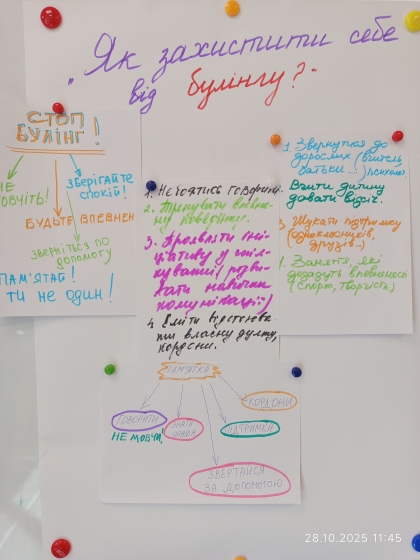 "Як захистити себе
від булінгу?"
СТОП
БУЛІНГ!
НЕ
МОВЧІТЬ!
ЗБЕРІГАЙТЕ
СПОКІЙ!
БУДЬТЕ ВПЕВНЕН
ЗВЕРНІТЬСЯ ПО
ДОПОМОГУ
ПАМ'ЯТАЙ!
ТИ НЕ ОДИН!
1. Не боятись говорити.
2. Тренувати впевне-
ну поведінку.
3. Проявляти іні-
ціативу у спіл-
куванні (розви-
вати навички
комунікації)
4. Вміти відстоюва-
ти власну думку,
кордони.
1. Звернутися до
дорослих (вчитель,
батьки...)
Вчити дитину
давати відсіч.
3. Шукати підтримку
(однокласників,
друзів..)
Заняття, які
додадуть впевненості
(спорт, творчість)
ПАМ'ЯТКА
ГОВОРИТИ
НЕ МОВЧИ!
ЗНАТИ
ПРАВА
ПІДТРИМКИ
КОРДОНИ
ЗВЕРТАЙСЯ
ЗА ДОПОМОГОЮ
28.10.2025 11:45